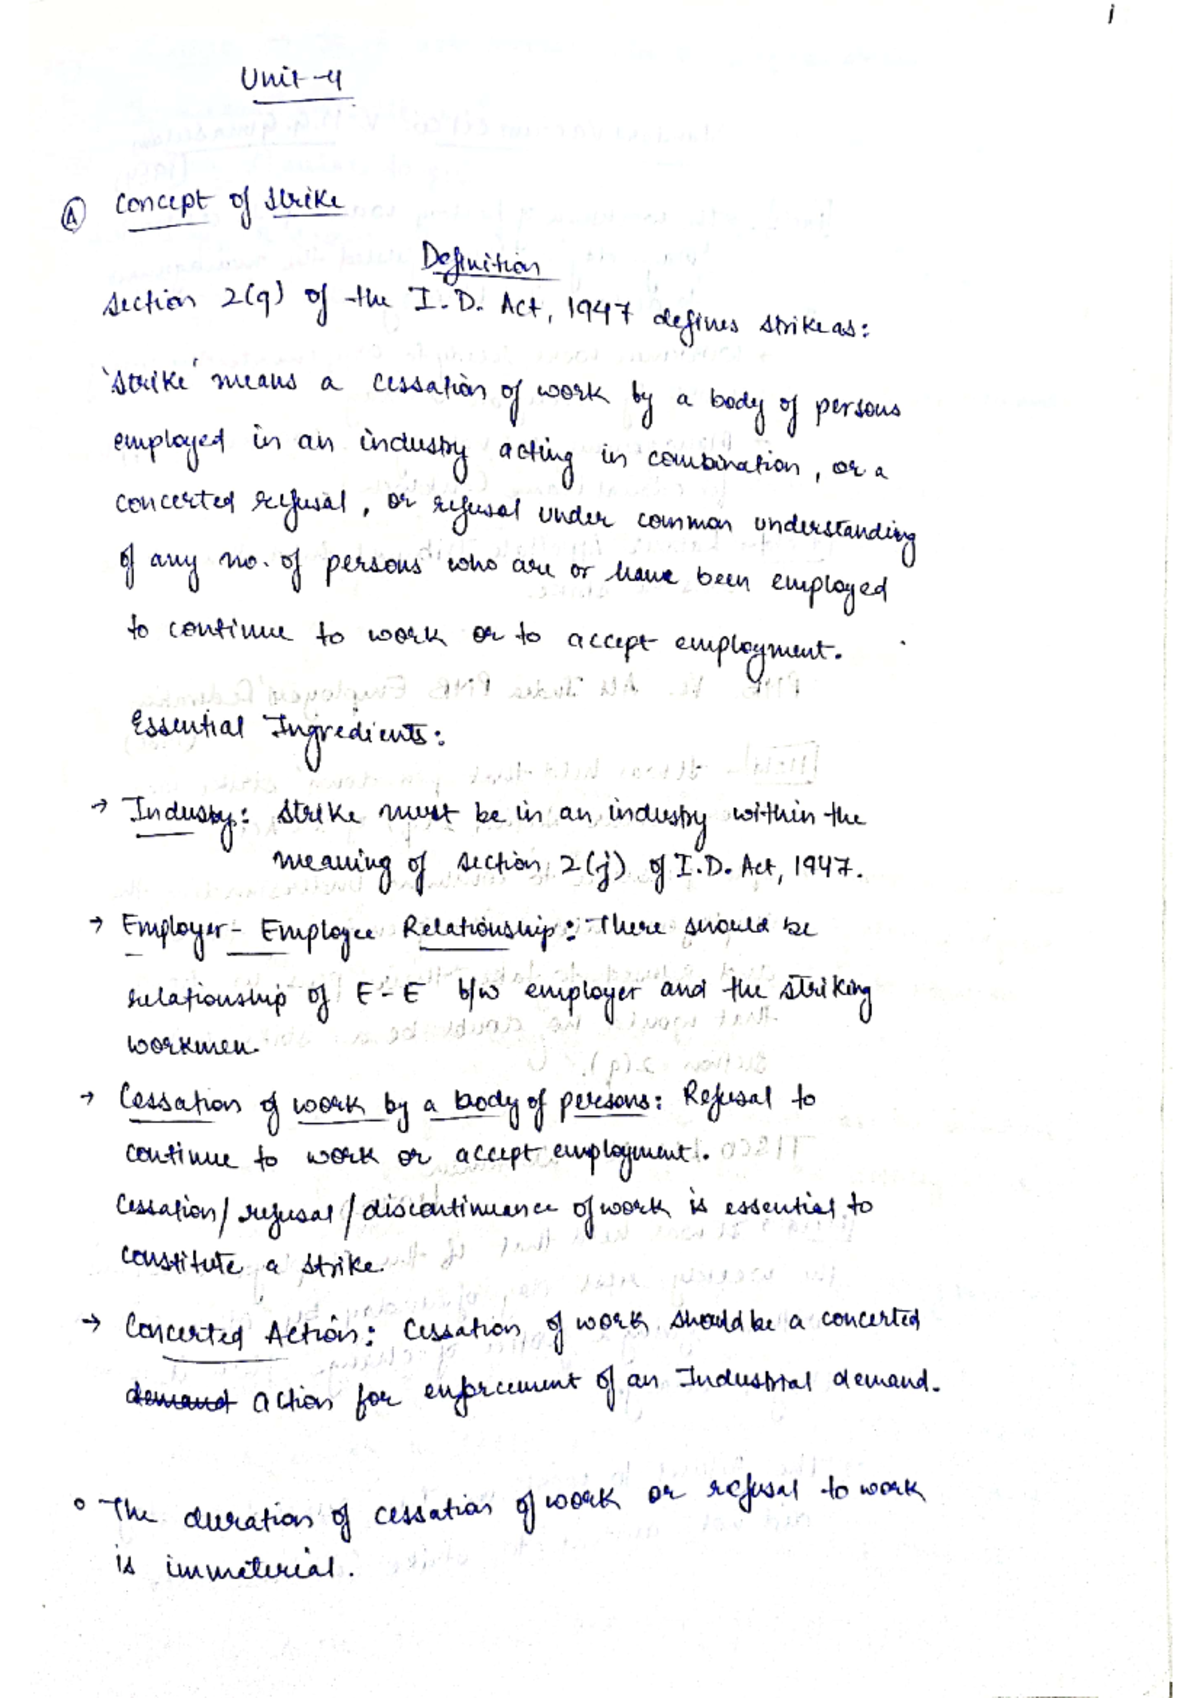 i
Unit-4
(A) Concept of strike
Definition
Section 2(q) of the I.D. Act, 1947 defines strike as:
'Strike' means a cessation of work by a body of persons
employed in an industry acting in combination, or a
concerted refusal, or refusal under common understanding
of any no. of persons who are or have been employed
to continue to work or to accept employment.
Essential Ingredients:
→ Industry: Strike must be in an industry within the
meaning of section 2(j) of I.D. Act, 1947.
→ Employer- Employee Relationship: There should be
relationship of E-E b/w employer and the striking
workmen.
→ Cessation of work by a body of persons: Refusal to
continue to work or accept employment.
Cessation/refusal/discontinuance of work is essential to
constitute a strike.
→ Concerted Action: Cessation of work should be a concerted
demand action for enforcement of an Industrial demand.
° The duration of cessation of work or refusal to work
is immaterial.